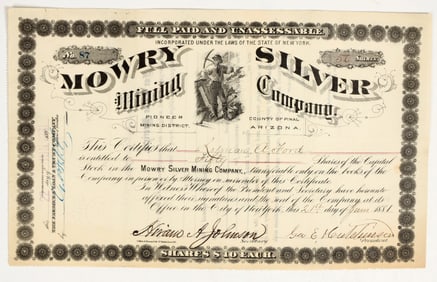 FULL PAID AND UNASSESSABLE
INCORPORATED UNDER THE LAWS OF THE STATE OF NEW YORK.
No. 87
Shares
MOWRY SILVER
Mining Company
PIONEER
MINING DISTRICT,
COUNTY OF PINAL
ARIZONA.
This Certifies that Ford
is entitled to Fifty Shares of the Capital
Stock in the MOWRY SILVER MINING COMPANY, transferable only on the books of the
Company in person or by Attorney on surrender of this Certificate
In Witness Whereof the President and Secretary have hereunto
affixed their signatures and the seal of the Company at its
Office in the City of New York this day of 1881
Hiram A. Johnson
SECRETARY
Geo E Hutchinson
PRESIDENT
SHARES $10 EACH.